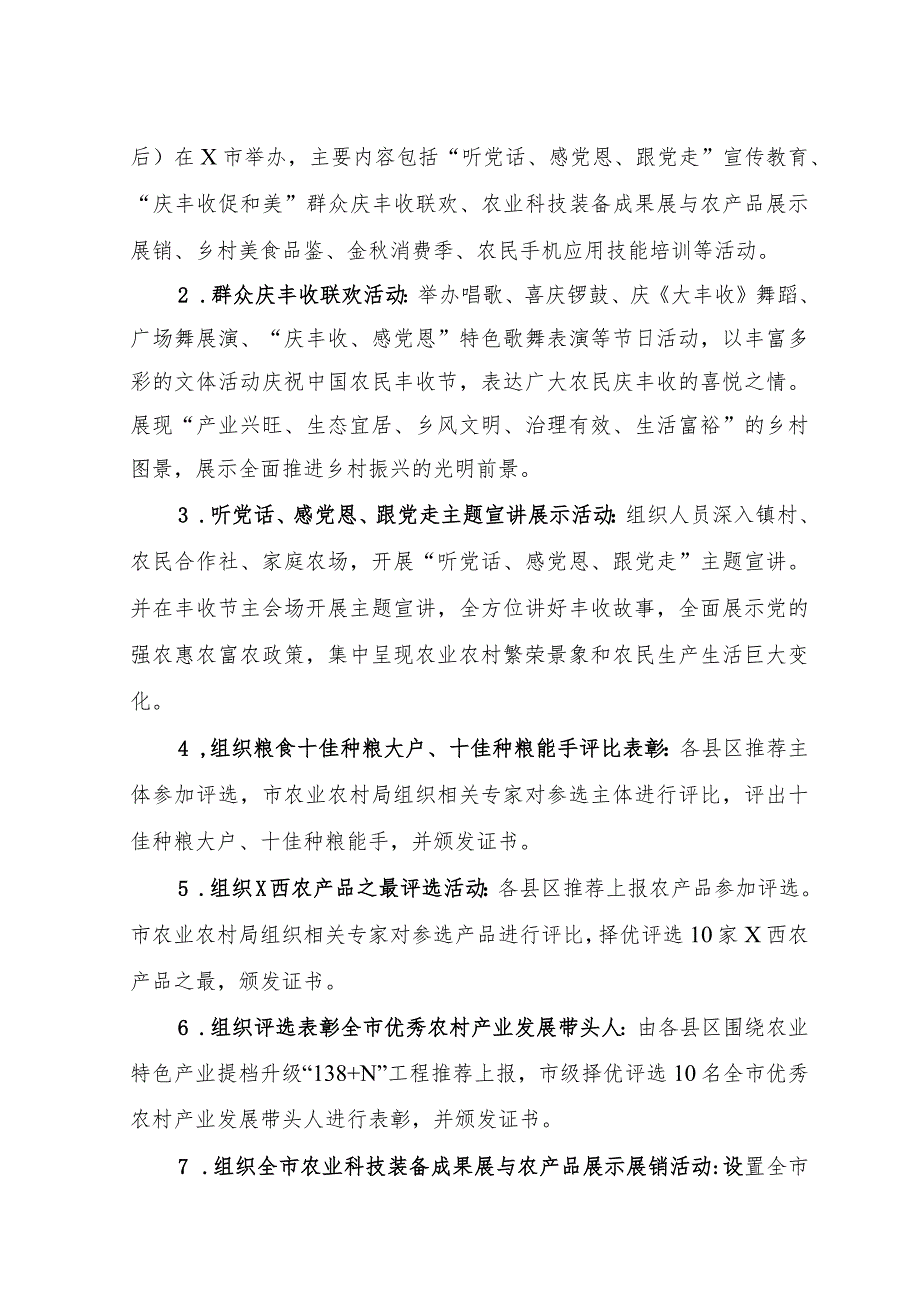 后）在 X 市举办，主要内容包括“听党话、感党恩、跟党走”宣传教育、
“庆丰收促和美”群众庆丰收联欢、农业科技装备成果展与农产品展示
展销、乡村美食品鉴、金秋消费季、农民手机应用技能培训等活动。
2 .群众庆丰收联欢活动：举办唱歌、喜庆锣鼓、庆《大丰收》舞蹈、
广场舞展演、“庆丰收、感党恩”特色歌舞表演等节日活动，以丰富多
彩的文体活动庆祝中国农民丰收节，表达广大农民庆丰收的喜悦之情。
展现“产业兴旺、生态宜居、乡风文明、治理有效、生活富裕”的乡村
图景，展示全面推进乡村振兴的光明前景。
3 .听党话、感党恩、跟党走主题宣讲展示活动：组织人员深入镇村、
农民合作社、家庭农场，开展“听党话、感党恩、跟党走”主题宣讲。
并在丰收节主会场开展主题宣讲，全方位讲好丰收故事，全面展示党的
强农惠农富农政策，集中呈现农业农村繁荣景象和农民生产生活巨大变
化。
4 ,组织粮食十佳种粮大户、十佳种粮能手评比表彰：各县区推荐主
体参加评选，市农业农村局组织相关专家对参选主体进行评比，评出十
佳种粮大户、十佳种粮能手，并颁发证书。
5 .组织X西农产品之最评选活动：各县区推荐上报农产品参加评选。
市农业农村局组织相关专家对参选产品进行评比，择优评选 10 家 X 西农
产品之最，颁发证书。
6 .组织评选表彰全市优秀农村产业发展带头人：由各县区围绕农业
特色产业提档升级“138+N”工程推荐上报，市级择优评选 10 名全市优秀
农村产业发展带头人进行表彰，并颁发证书。
7 .组织全市农业科技装备成果展与农产品展示展销活动：设置全市